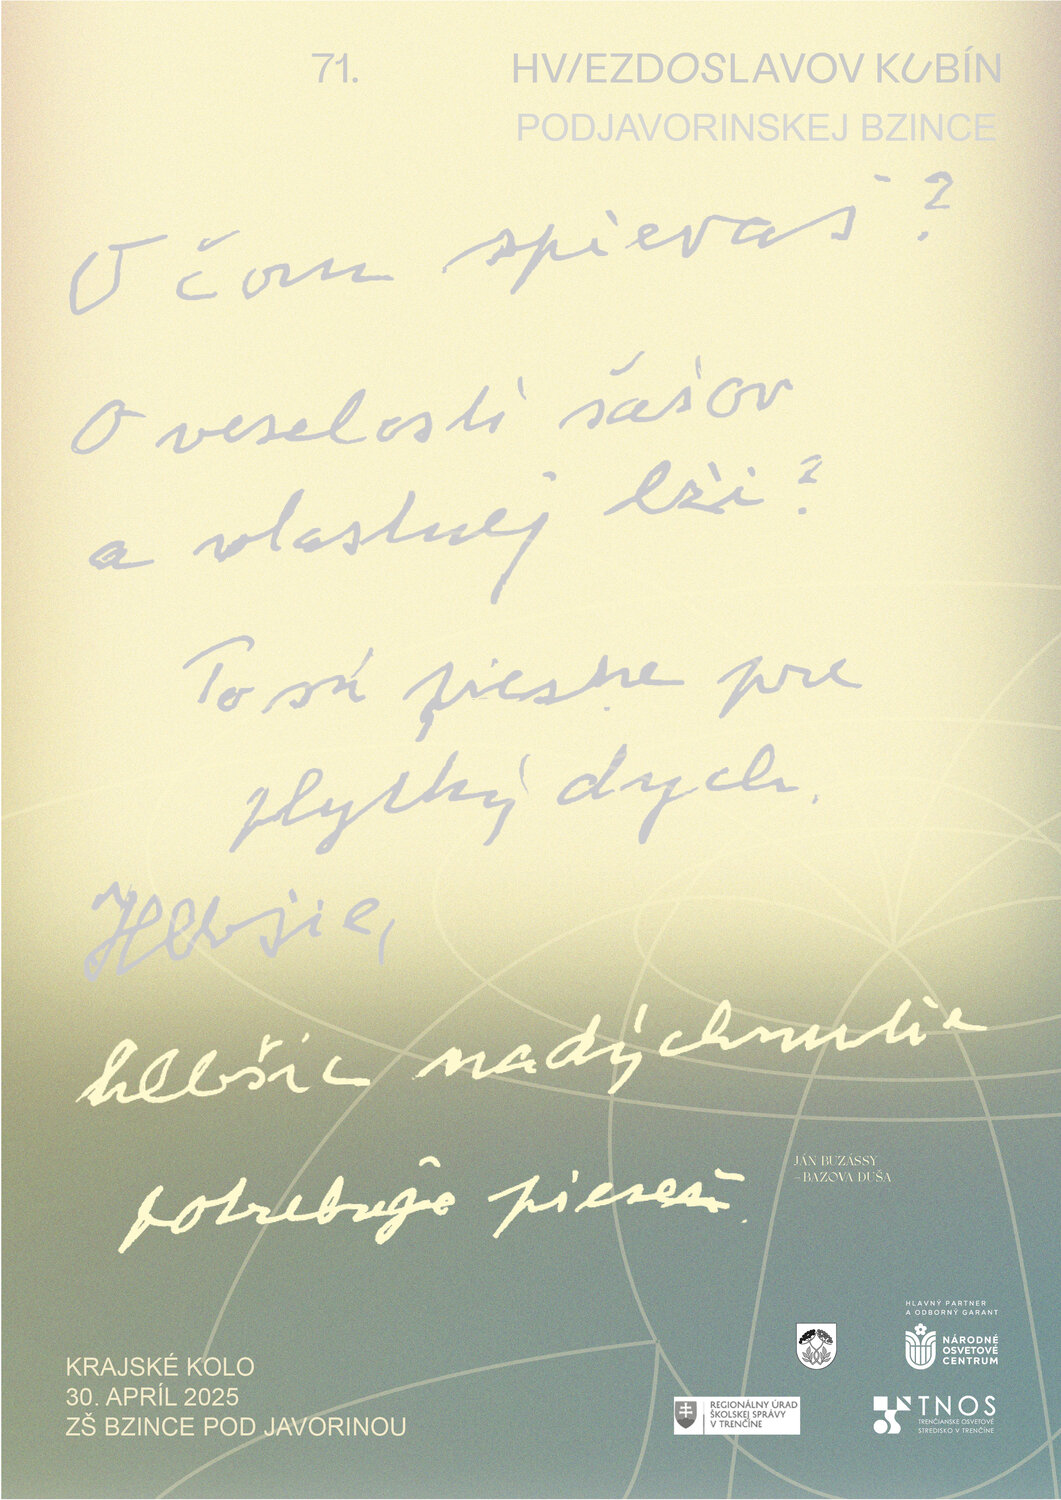 71. HVIEZDOSLAVOV KUBÍN
PODJAVORINSKEJ BZINCE
O čom spievaš?
O veselosti šašov
a vlastnej lži?
To sú piesne pre
plytký dych.
Hlbšie,
hlbšie nadýchnutie
potrebuje pieseň.
JÁN BUZÁSSY
– BAZOVA DUŠA
HLAVNÝ PARTNER
A ODBORNÝ GARANT
NÁRODNÉ
OSVETOVÉ
CENTRUM
KRAJSKÉ KOLO
30. APRÍL 2025
ZŠ BZINCE POD JAVORINOU
REGIONÁLNY ÚRAD
ŠKOLSKEJ SPRÁVY
V TRENČÍNE
TNOS
TRENČIANSKE OSVETOVÉ
STREDISKO V TRENČÍNE